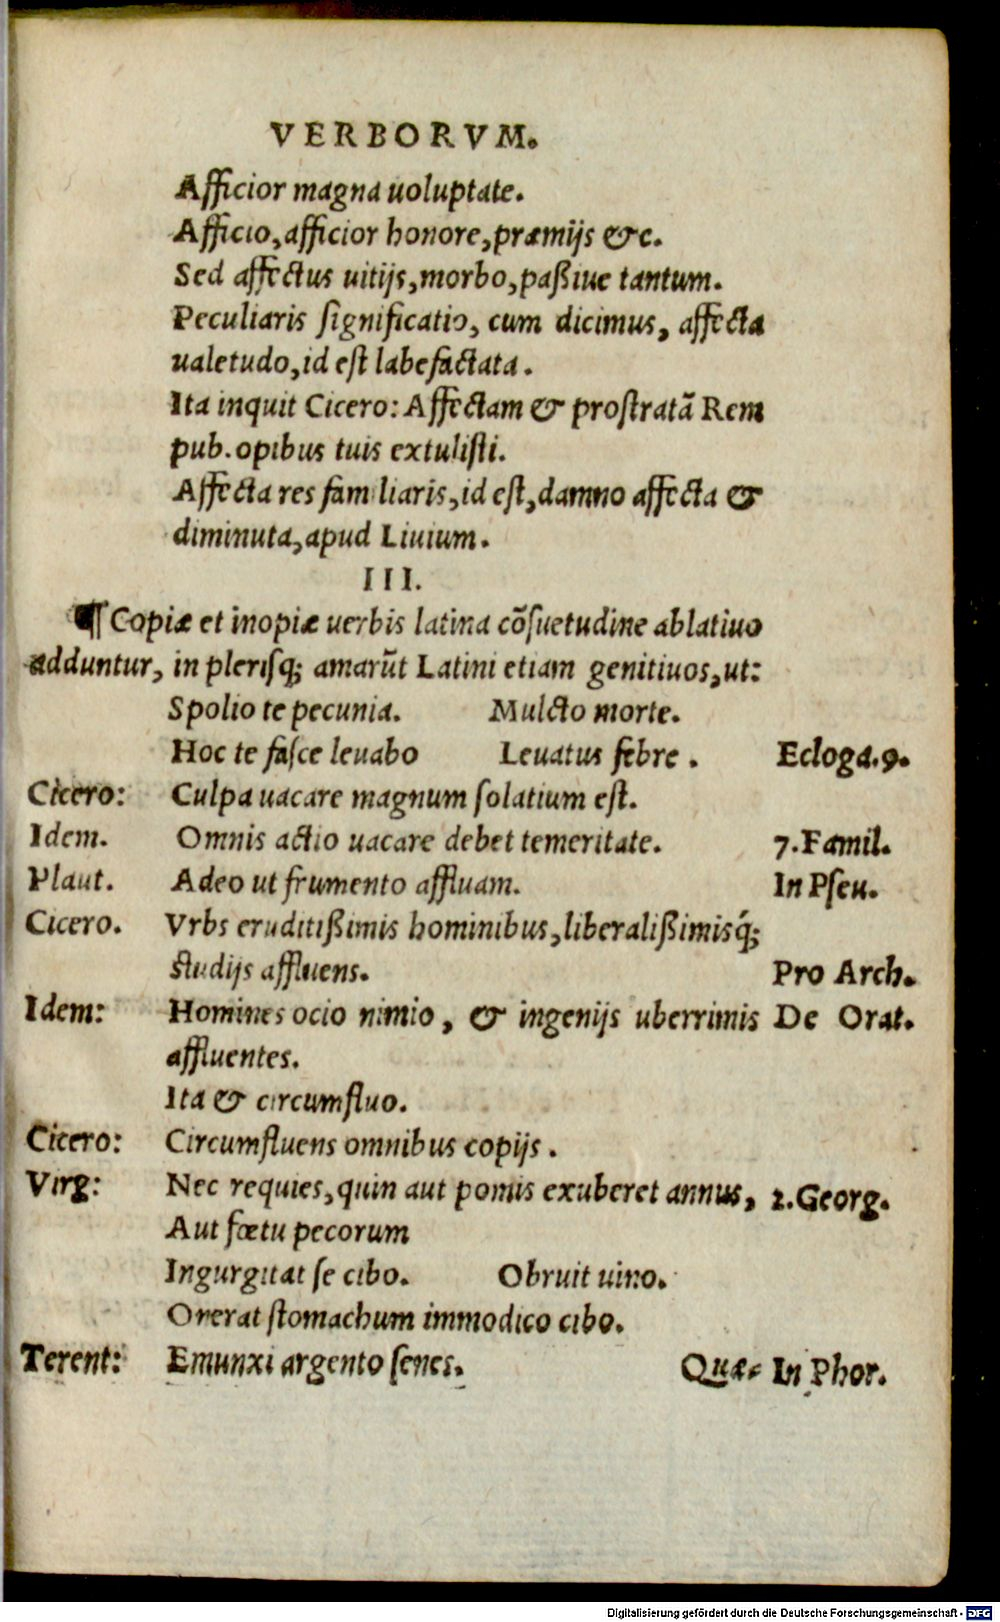 VERBORVM.
Afficior magna uoluptate.
Afficio, afficior honore, præmijs &c.
Sed affectus uitijs, morbo, paßiue tantum.
Peculiaris significatio, cum dicimus, affecta
ualetudo, id est labefactata.
Ita inquit Cicero: Affectam & prostratã Rem
pub. opibus tuis extulisti.
Affecta res familiaris, id est, damno affecta &
diminuta, apud Liuium.
III.
¶ Copiæ et inopiæ uerbis latina cõsuetudine ablatiuo
adduntur, in plerisq; amarũt Latini etiam genitiuos, ut:
Spolio te pecunia. Mulcto morte.
Hoc te fasce leuabo Leuatus febre. Ecloga.9.
Cicero: Culpa uacare magnum solatium est.
Idem. Omnis actio uacare debet temeritate. 7.Famil.
Plaut. Adeo ut frumento affluam. In Pseu.
Cicero. Vrbs eruditißimis hominibus, liberalißimisq́;
studijs affluens. Pro Arch.
Idem: Homines ocio nimio, & ingenijs uberrimis De Orat.
affluentes.
Ita & circumfluo.
Cicero: Circumfluens omnibus copijs.
Virg: Nec requies, quin aut pomis exuberet annus, 2.Georg.
Aut fœtu pecorum
Ingurgitat se cibo. Obruit uino.
Onerat stomachum immodico cibo.
Terent: Emunxi argento senes. Quæ= In Phor.
Digitalisierung gefördert durch die Deutsche Forschungsgemeinschaft - DFG